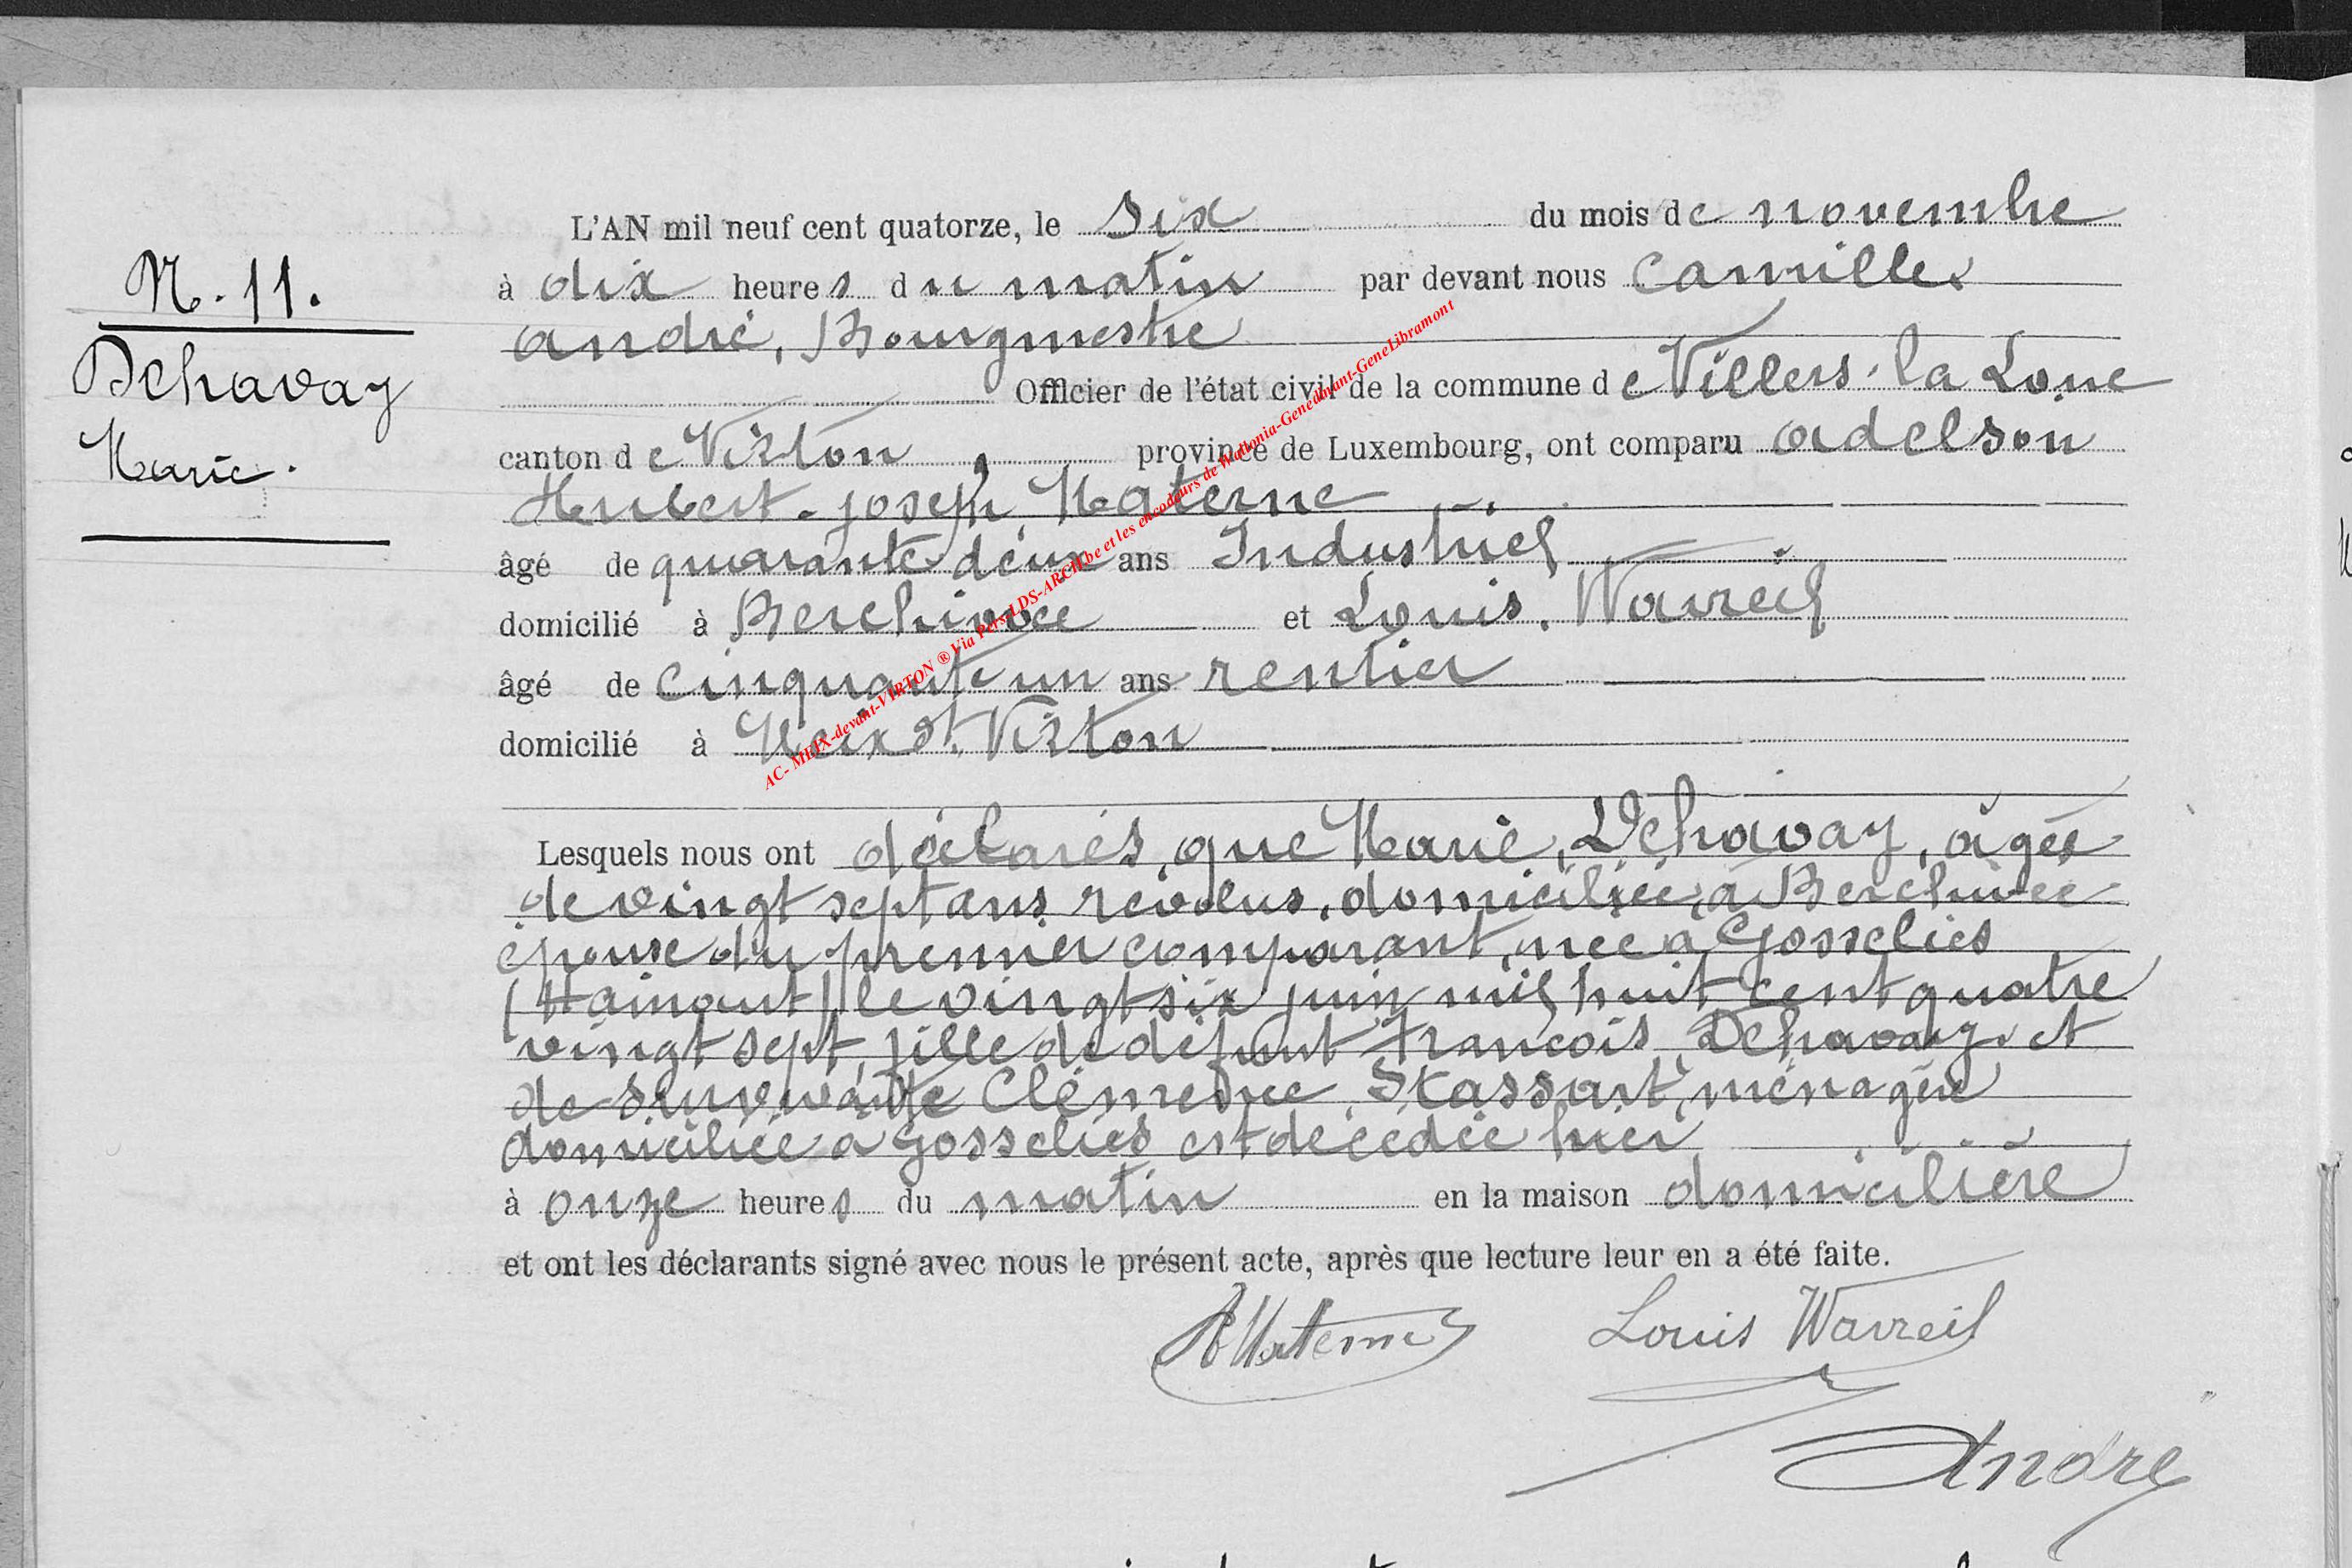 N. 11.
Dehavay
Marie.
L'AN mil neuf cent quatorze, le six du mois de novembre
à dix heures du matin par devant nous Camille
André, Bourgmestre
Officier de l'état civil de la commune de Villers-la Loue
canton de Virton, province de Luxembourg, ont comparu Adelson
Hubert-Joseph Materne
âgé de quarante deux ans Industriel
domicilié à Berchiwée et Louis, Warreil
âgé de cinquante un ans rentier
domicilié à Meix dt Virton
Lesquels nous ont déclarés, que Marie, Dehavay, âgée
de vingt sept ans révolus, domiciliée, à Berchiwée
épouse du premier comparant, née à Gosselies
(Hainaut) le vingt six juin mil huit cent quatre
vingt sept, fille de défunt François Dehavay et
de survivante Clémence, Stassart, ménagère
domiciliée à Gosselies est décédée hier
à onze heures du matin en la maison domicilière
et ont les déclarants signé avec nous le présent acte, après que lecture leur en a été faite.
AMaterne Louis Warreil
André
AC- MEIX-devant-VIRTON ® Via Pers-LDS-ARCH.be et les encodeurs de Wallonia-Genedinant-GeneLibramont